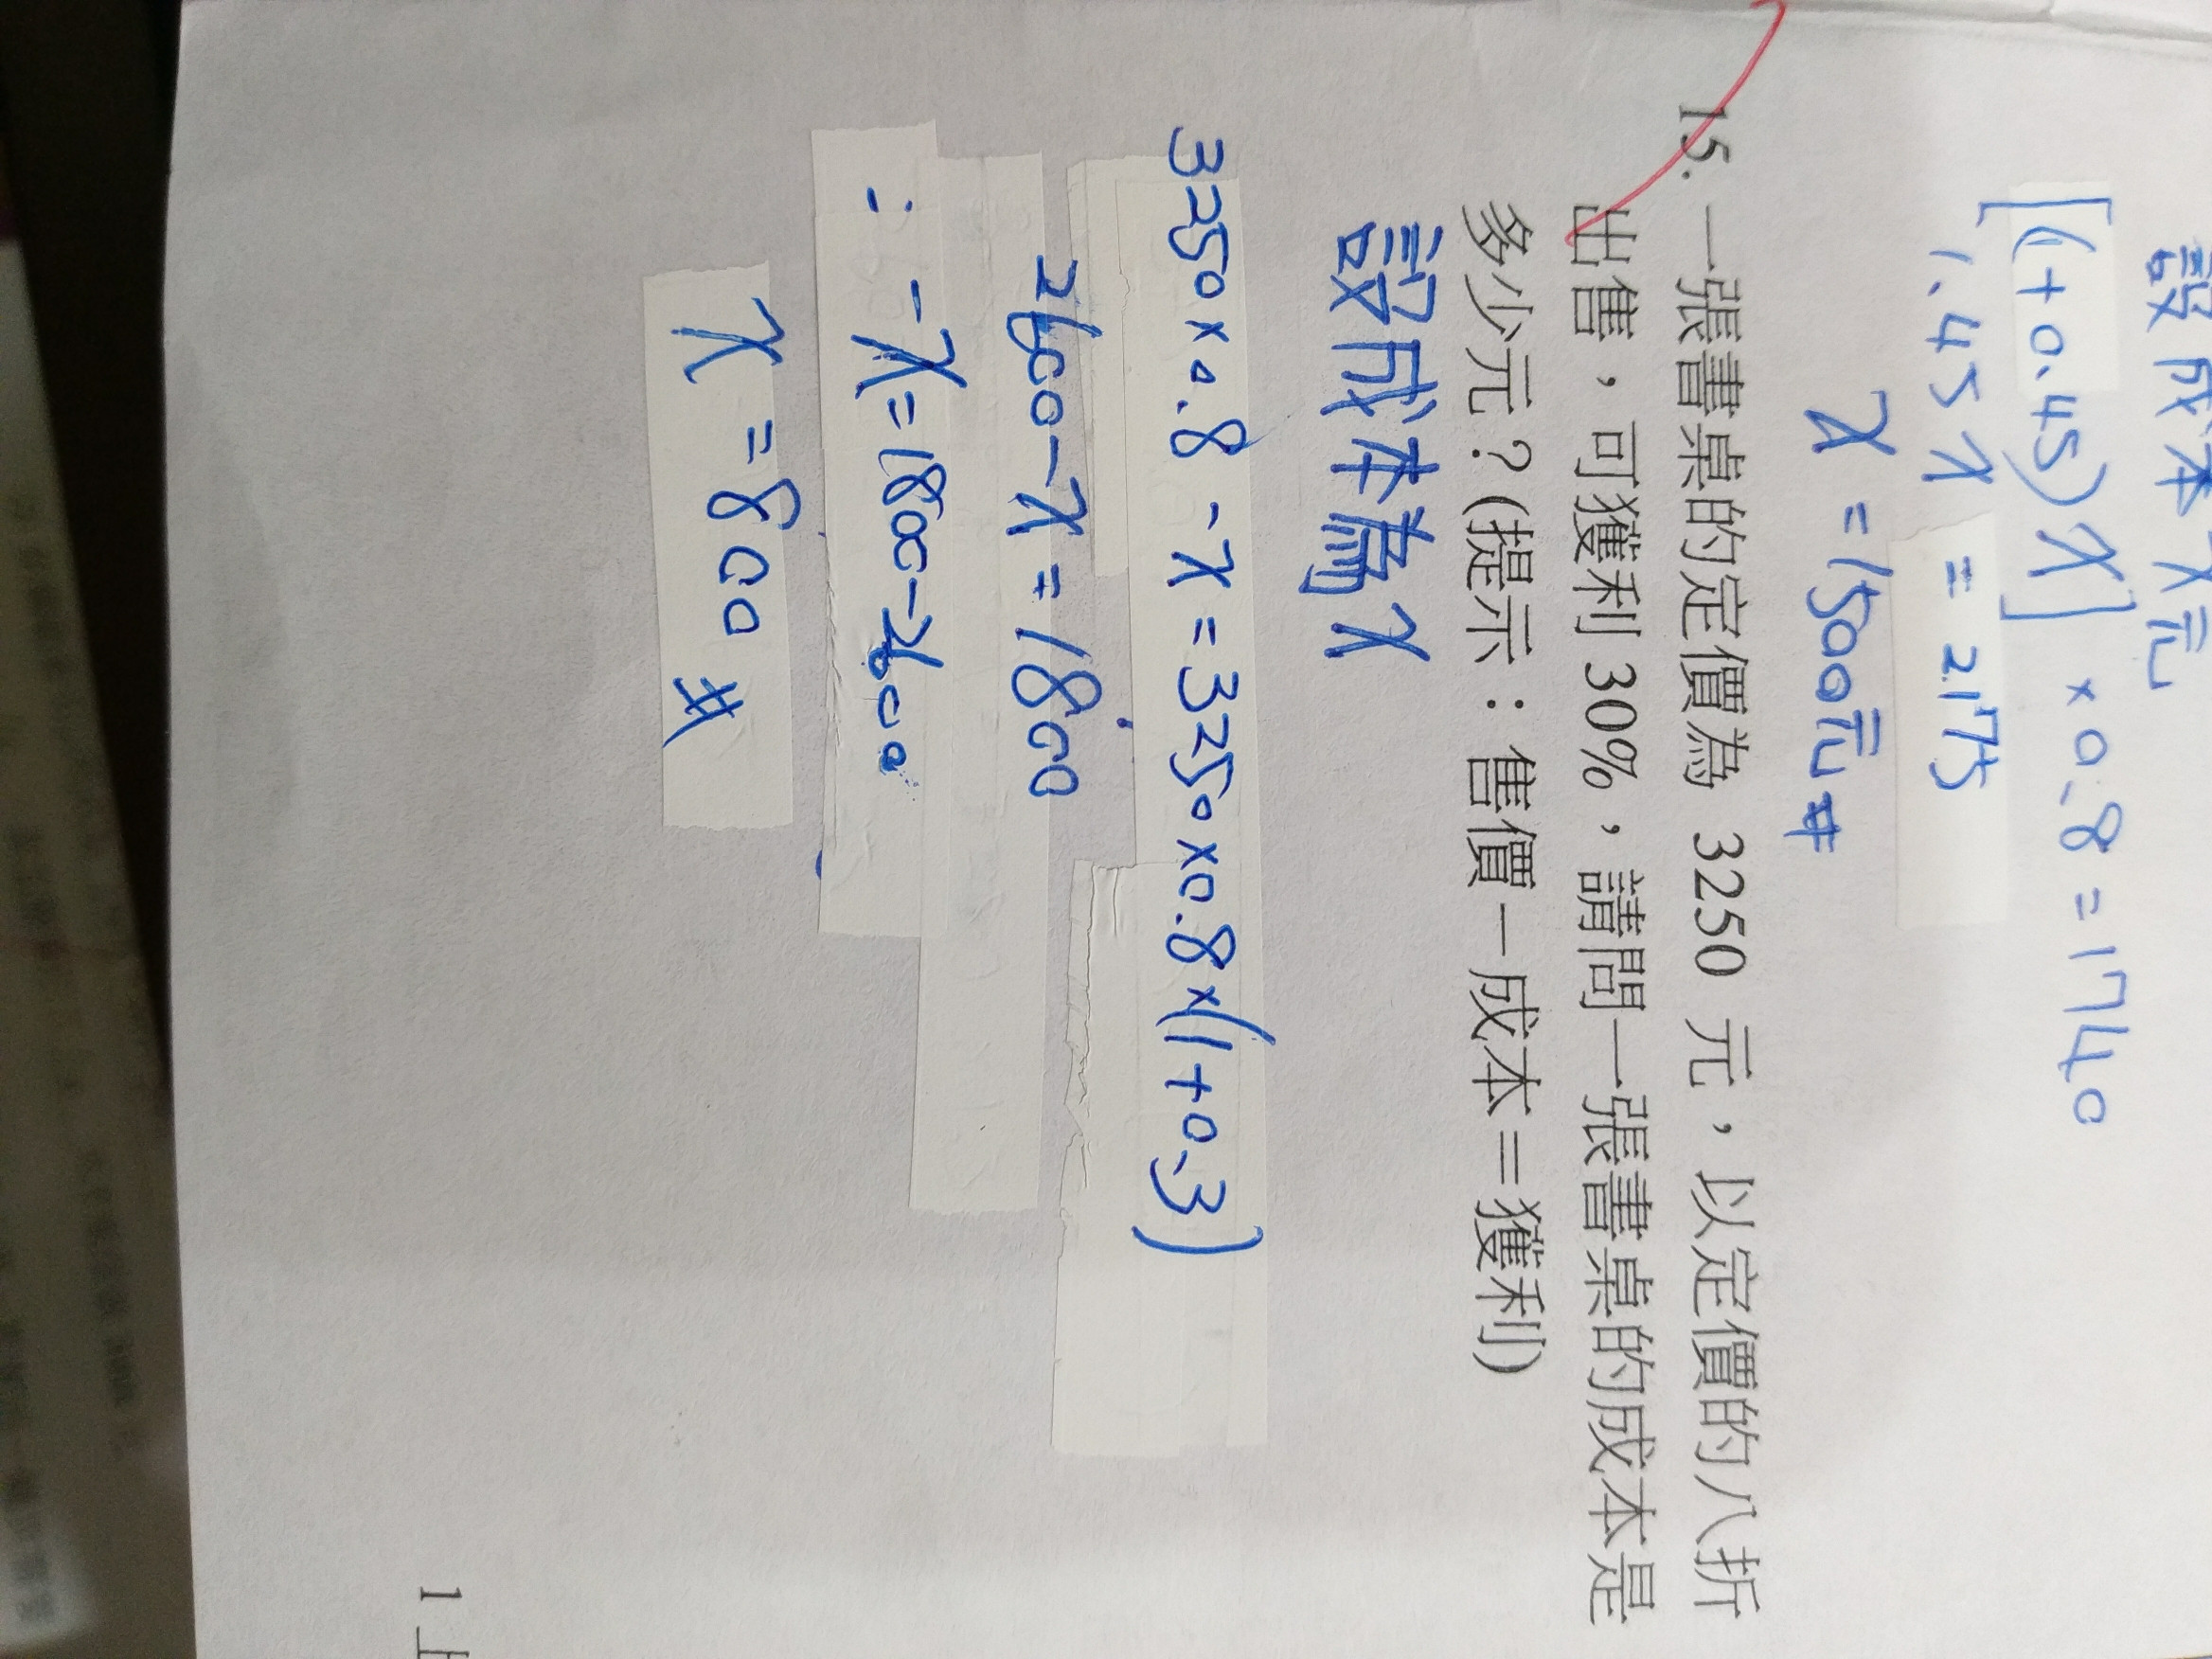 設成本x元
[(1+0.45)x]×0.8=1740
1.45x=2175
x=1500元#
15. 一張書桌的定價為 3250 元，以定價的八折
出售，可獲利 30%，請問一張書桌的成本是
多少元？(提示：售價－成本＝獲利)
設成本為x
3250×0.8-x=3250×0.8×(1+0.3)
2600-x=1800
-x=1800-2600
x=800#
1